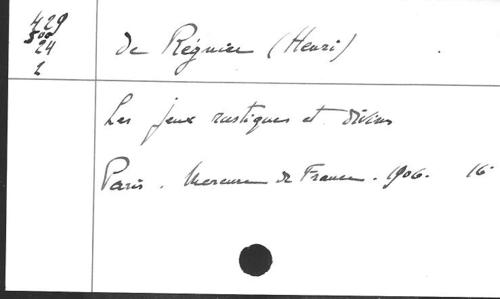 429
500
24
2
de Régnier (Henri)
Les jeux rustiques et divins
Paris. Mercure de France. 1906. 16